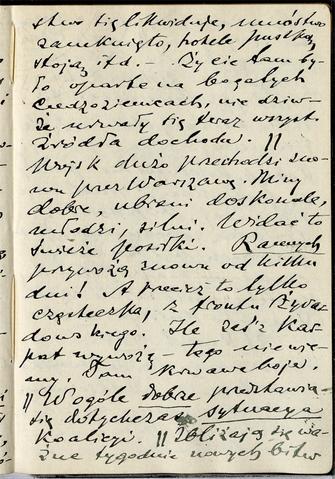 stwo się likwiduje, mnóstwo
zamknięto, hotele pustką
stoją itd. — Życie tam by-
ło oparte na bogatych
cudzoziemcach, nie dziw-
że urwały się teraz wszyst.
źródła dochodu. ||
Wojsk dużo przechodzi zno-
wu przez Warszawę. Miny
dobre, ubrani doskonale,
młodzi, silni. Widać to
świeże posiłki. Rannych
przywożą znowu od kilku
dni! A przecież to tylko
cząsteczka, z frontu Żyrar-
dowskiego. Ile zaś z Kar-
pat wywożą — tego nie wie-
my. Tam krwawe boje.
|| W ogóle dobrze przedstawia
się dotychczas sytuacya
Koalicyi. || Zbliżają się wa-
żne tygodnie nowych bitw